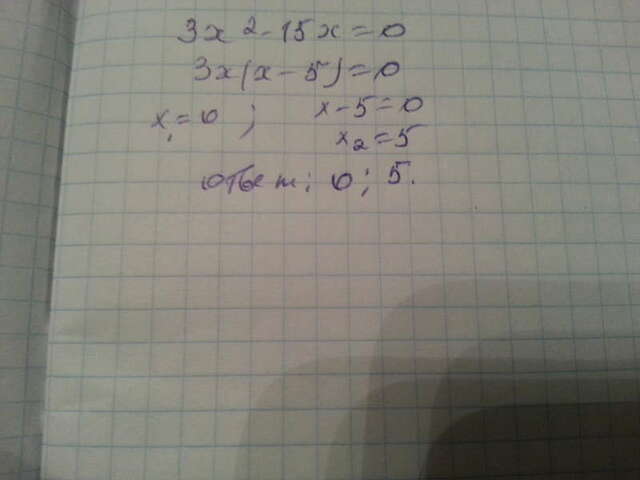 3x²-15x=0
3x(x-5)=0
x₁=0; x-5=0
x₂=5
ответ: 0; 5.